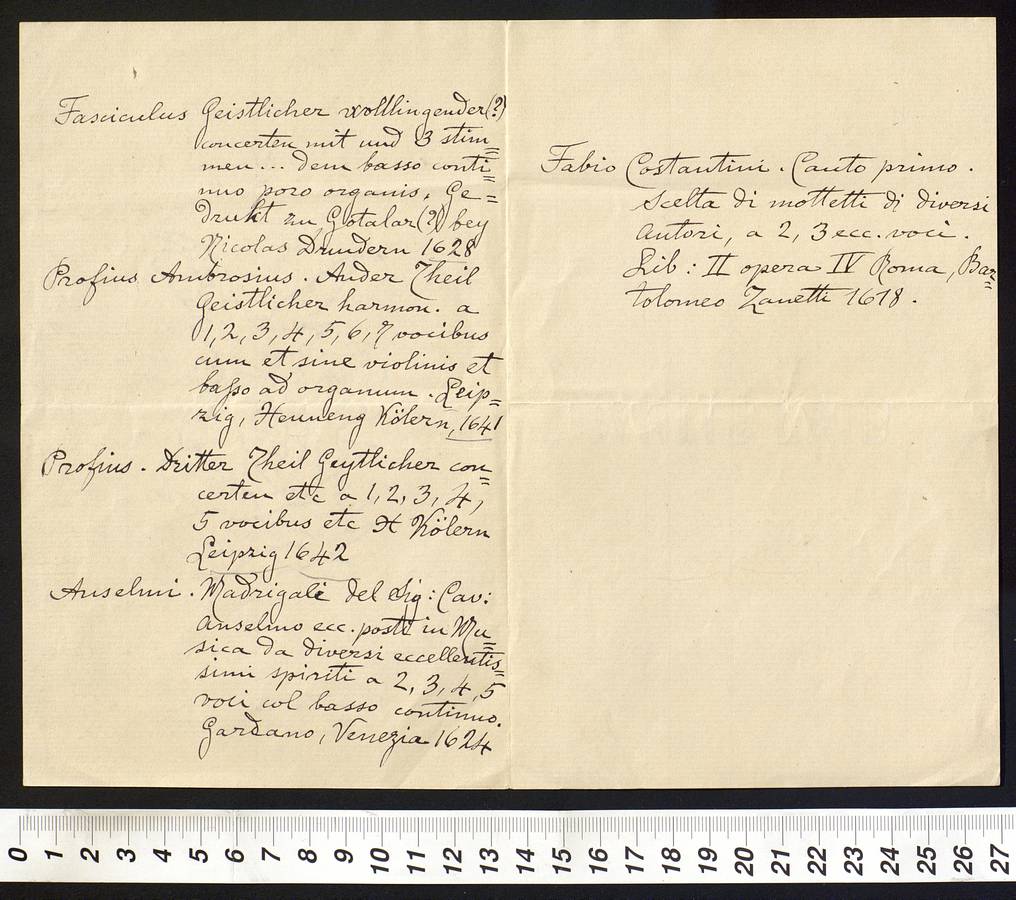 Fasciculus Geistlicher wolllingender(?)
concerten mit und 3 stim=
men ... dem basso conti=
nuo poro organis. Ge=
drukt zu Gotalar(?) bey
Nicolas Drundern 1628
Profius Ambrosius. Ander Theil
Geistlicher harmon. a
1, 2, 3, 4, 5, 6, 7 vocibus
cum et sine violinis et
basso ad organum. Leip=
zig, Henneng Kölern, 1641
Profius. Dritter Theil Geytlicher con=
certen etc a 1, 2, 3, 4,
5 vocibus etc H Kölern
Leipzig 1642
Anselmi. Madrigali del Sig: Cav:
Anselmo ecc. posti in Mu=
sica da diversi eccellentis=
simi spiriti a 2, 3, 4, 5
voci col basso continuo.
Gardano, Venezia 1624
Fabio Costantini. Canto primo.
Scelta di mottetti di diversi
autori, a 2, 3 ecc. voci.
Lib: II opera IV Roma, Bar=
tolomeo Zanetti 1618.
0 1 2 3 4 5 6 7 8 9 10 11 12 13 14 15 16 17 18 19 20 21 22 23 24 25 26 27